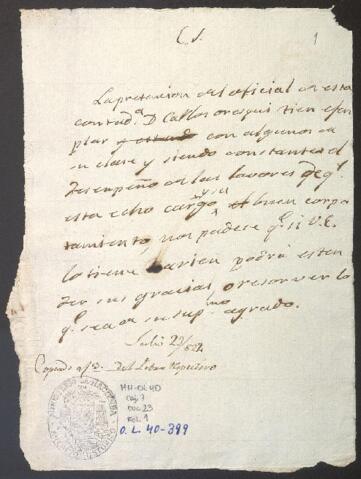 E.S.
1
La pretencion del oficial de esta
contad.a D. Carlos oregui tien exem
plar y estado con algunos de
su clase y siendo constantes el
desempeño en las lavores de q.e
esta echo cargo y su el buen compor
tamiento, nos padese q.e si V.E.
lo tiene abien podrá esten
der sus gracias, o resorver lo
q.e sea de su sup.mo agrado.
Julio 22/824
Copiado a f.s Del Libro respectivo
MH-OL 40
Caj. 7
Doc 23
Fol. 1
O.L. 40-399